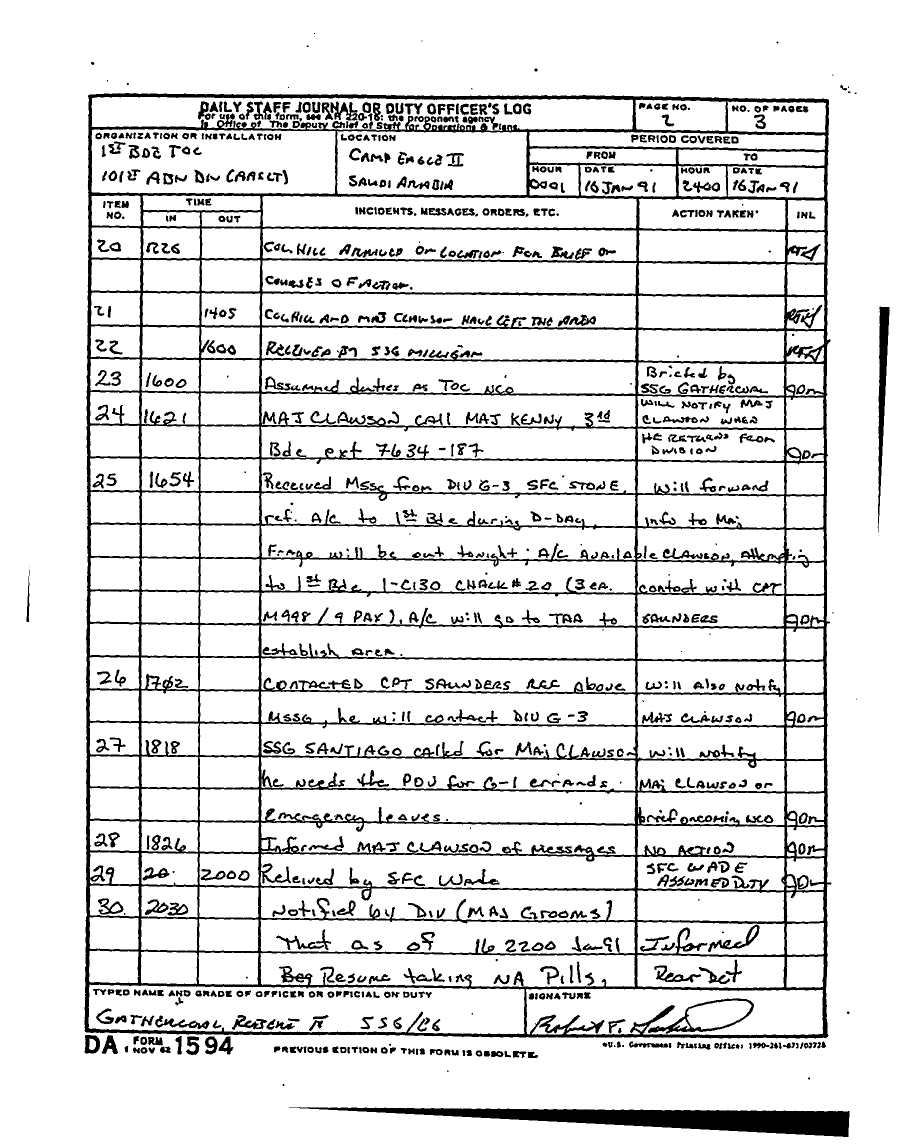 DAILY STAFF JOURNAL OR DUTY OFFICER'S LOG
For use of this form, see AR 220-15; the proponent agency
is Office of The Deputy Chief of Staff for Operations & Plans.
PAGE NO.
2
NO. OF PAGES
3
ORGANIZATION OR INSTALLATION
1ST BDE TOC
101ST ABN DIV (AASLT)
LOCATION
CAMP EAGLE II
SAUDI ARABIA
PERIOD COVERED
FROM
TO
HOUR DATE HOUR DATE
0001 16 JAN 91 2400 16 JAN 91
ITEM NO.
TIME
IN OUT
INCIDENTS, MESSAGES, ORDERS, ETC.
ACTION TAKEN
INL
20 1226 COL HILL ARRIVED ON LOCATION FOR BRIEF ON
COURSES OF ACTION.
21 1405 COL HILL AND MAJ CLAWSON HAVE LEFT THE AREA
22 1600 RELIEVED BY SSG MILLIGAN
23 1600 Assumned duties as TOC NCO Briefed by
SSG GATHERCOAL
24 1621 MAJ CLAWSON, CALL MAJ KENNY, 3rd WILL NOTIFY MAJ
CLAWSON WHEN
Bde, ext 7634-187 HE RETURNS FROM
DIVISION
25 1654 Received Mssg from DIV G-3, SFC STONE, Will forward
ref. A/C to 1st Bde during D-DAY, info to Maj
Frago will be out tonight; A/C AVAILABLE CLAWSON, Attempting
to 1st Bde, 1-C130 CHALK #20, (3 ea. contact with CPT
M998 / 9 PAX), A/C will go to TAA to SAUNDERS
establish area.
26 1702 CONTACTED CPT SAUNDERS REF Above will Also Notify
Mssg, he will contact DIV G-3 MAJ CLAWSON
27 1818 SSG SANTIAGO called for Maj CLAWSON will notify
he needs the POV for G-1 errands, Maj CLAWSON or
emergency leaves. brief oncoming NCO
28 1826 Informed MAJ CLAWSON of messages NO ACTION
29 20 2000 Releived by SFC Wade SFC WADE
ASSUMED DUTY
30 2030 Notified by DIV (MAJ Grooms)
That as of 16 2200 Jan 91 Informed
Beg Resume taking NA Pills, Rear Det
TYPED NAME AND GRADE OF OFFICER OR OFFICIAL ON DUTY
GATHERCOAL, ROBERT F. SSG/E6
SIGNATURE
DA FORM 1 NOV 62 1594
PREVIOUS EDITION OF THIS FORM IS OBSOLETE.
*U.S. Government Printing Office: 1990-261-871/02728